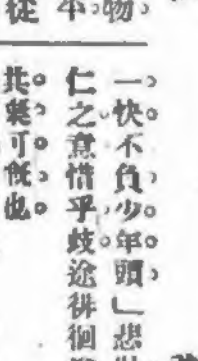 物
本
從
一快不負少年頭」悲壯
仁之意惜乎歧途徘徊
共可慨也